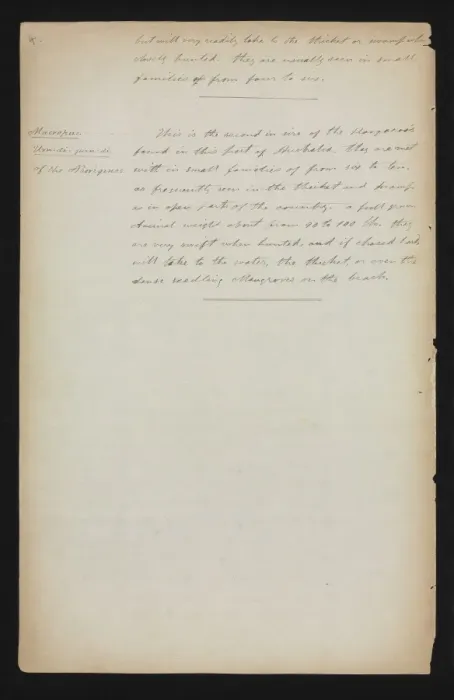 but will very readily take to the thicket or swamp when
closely hunted. they are usually seen in small
families of from four to six.
Macropus
of the Aborigines
This is the second in size of the Kangaroos
found in this part of Australia. they are met
with in small families of from six to ten.
as frequently seen in the thicket and swamp
as in open parts of the country. a full grown
Animal weighs about from 90 to 100 lbs. they
are very swift when hunted. and if chased hard
will take to the water, the thicket or even the
dense Mangroves on the beach.